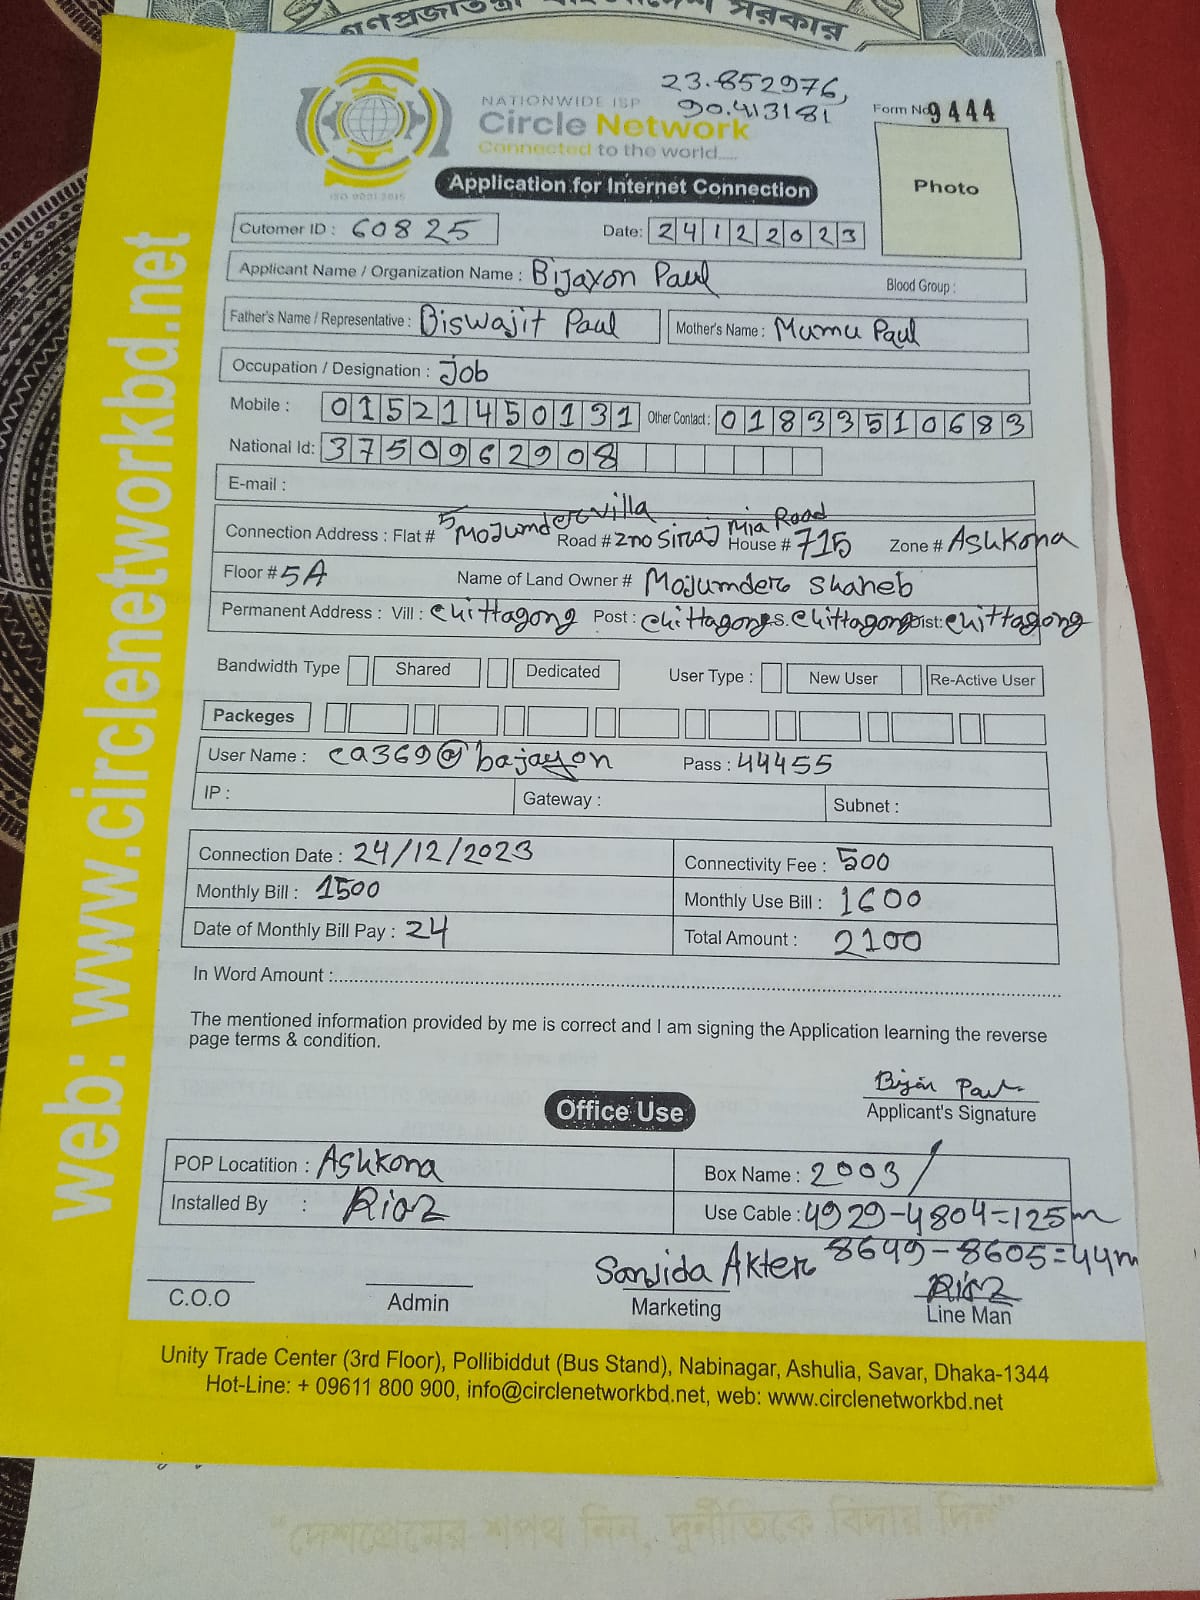 গণপ্রজাতন্ত্রী বাংলাদেশ সরকার
23.852976,
90.413181
NATIONWIDE ISP
Circle Network
Connected to the world....
ISO 9001:2015
Form No 9444
Photo
Application for Internet Connection
Cutomer ID : 60825 Date: 24122023
Applicant Name / Organization Name : Bijayon Paul Blood Group :
Father's Name / Representative : Biswajit Paul Mother's Name : Mumu Paul
Occupation / Designation : Job
Mobile : 01521450131 Other Contact : 01833510683
National Id: 3750962908
E-mail :
Connection Address : Flat # 5 Mojumder villa Road # 2no Siraj Mia Road House # 715 Zone # Ashkona
Floor # 5A Name of Land Owner # Mojumder Shaheb
Permanent Address : Vill : Chittagong Post : Chittagong P.S. Chittagong Dist: Chittagong
Bandwidth Type Shared Dedicated User Type : New User Re-Active User
Packeges
User Name : ca369@bajayon Pass : 44455
IP : Gateway : Subnet :
Connection Date : 24/12/2023 Connectivity Fee : 500
Monthly Bill : 1500 Monthly Use Bill : 1600
Date of Monthly Bill Pay : 24 Total Amount : 2100
In Word Amount :
The mentioned information provided by me is correct and I am signing the Application learning the reverse
page terms & condition.
Applicant's Signature
Office Use
POP Locatition : Ashkona Box Name : 2003/
Installed By : Riaz Use Cable : 4929-4804=125m
8649-8605=44m
Sanjida Akter Riaz
C.O.O Admin Marketing Line Man
Unity Trade Center (3rd Floor), Pollibiddut (Bus Stand), Nabinagar, Ashulia, Savar, Dhaka-1344
Hot-Line: + 09611 800 900, info@circlenetworkbd.net, web: www.circlenetworkbd.net
web: www.circlenetworkbd.net
"দেশপ্রেমের শপথ নিন, দুর্নীতিকে বিদায় দিন"